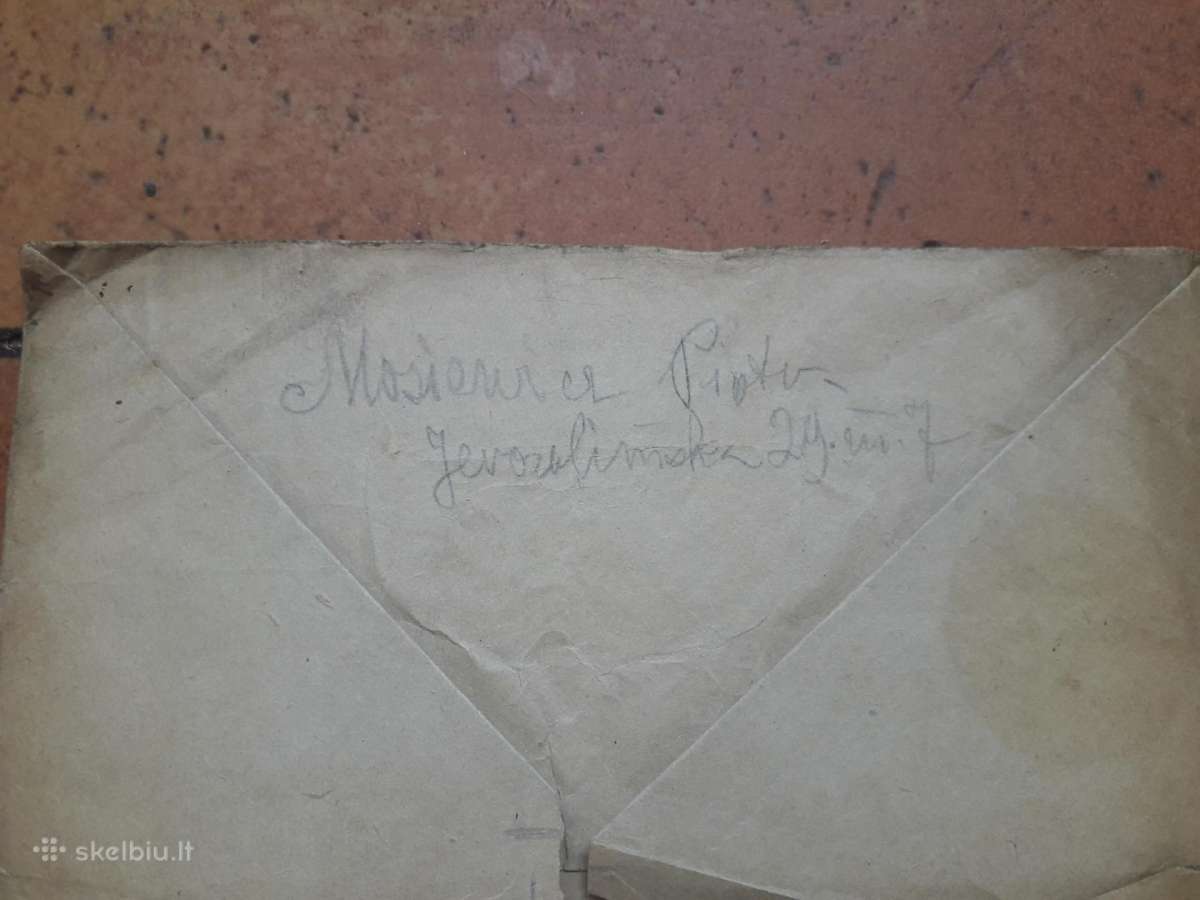 Mosiewicz Piotr
Jerozolimska 29. m. 7
skelbiu.lt